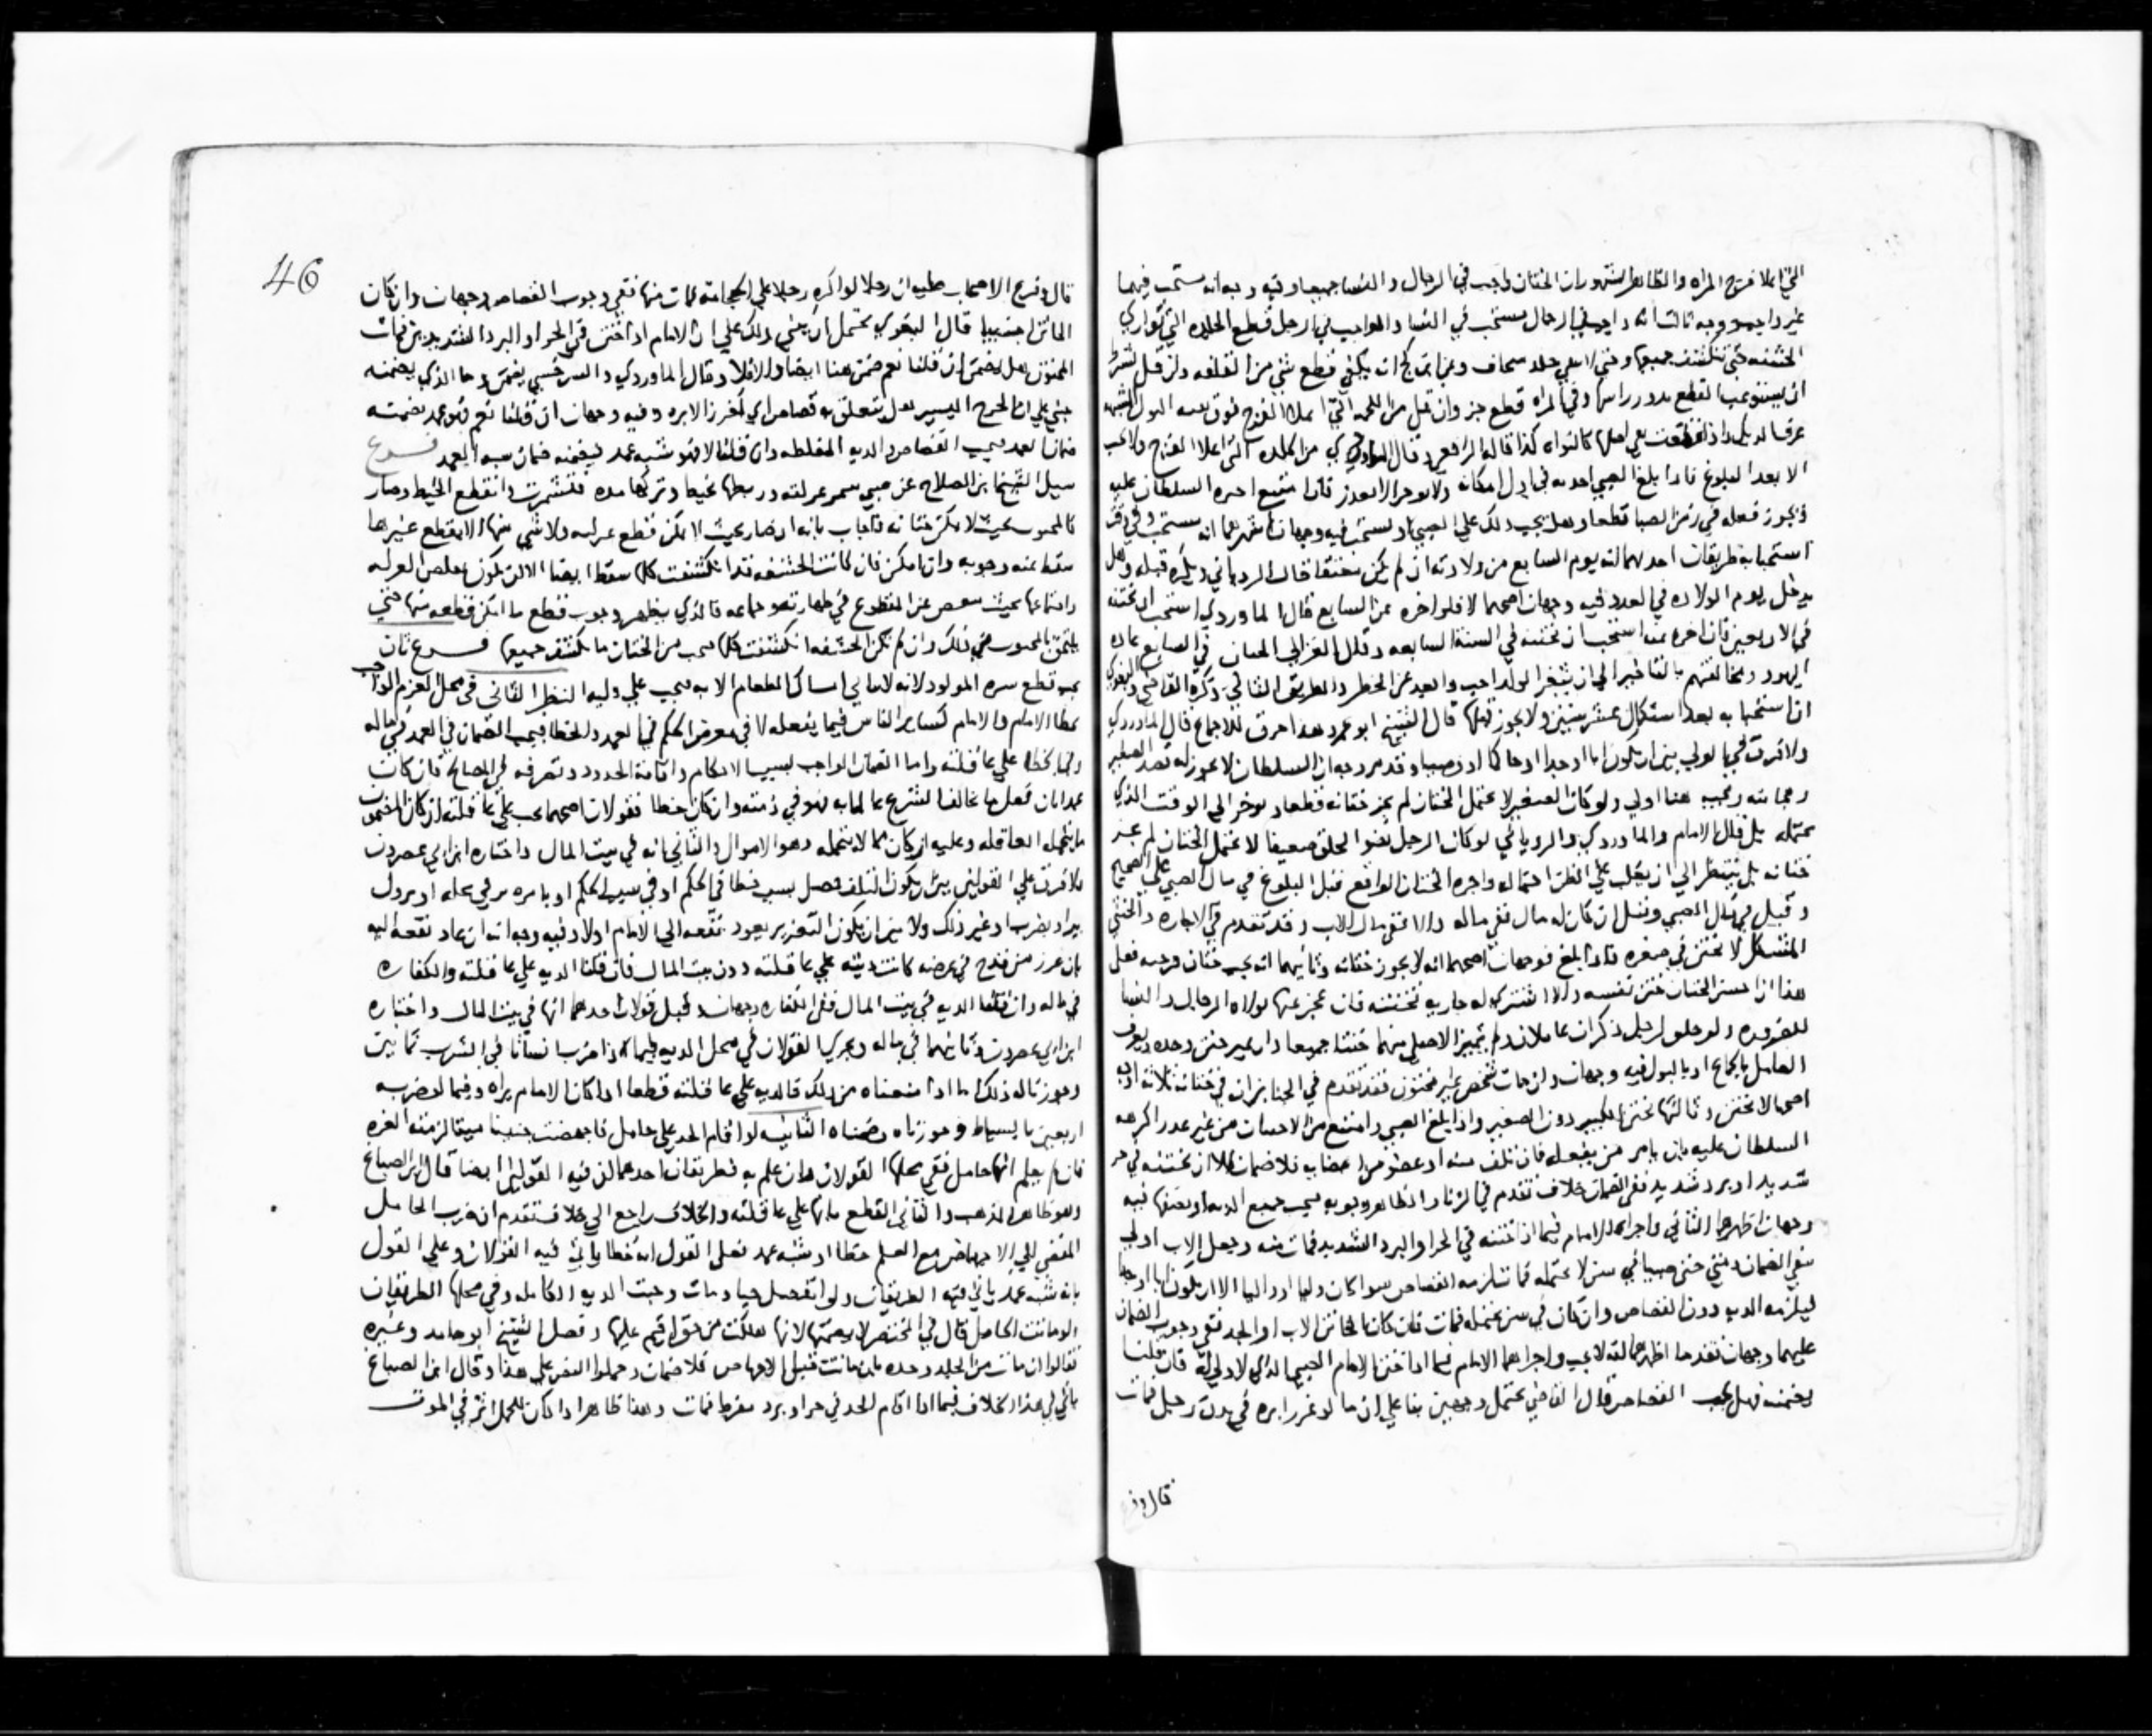 التي اعلا فرج المراه والظاهر المشهور ان الختان واجب في الرجال والنسا جميعا وفيه وجه انه مستحب فيهما
غير واجب ووجه ثالث انه واجب في الرجال مستحب في النسا والواجب في الرجل قطع الجلده التي تواري
الحشفه حتى تنكشف جميعها وعن ابن كج انه يكفي قطع شي من القلفه وان قل بشرط
ان يستوعب القطع تدور راسها وفي المراه قطع جز وان قل من اللحمه التي اعلا الفرج فوق البول تشبه
عرف الديك واذا قطعت بقي اصلها كالنواه كذا قاله الرافعي وقال الماوردي من الجلده التي اعلا الفرج ولا يجب
الا بعد البلوغ فاذا بلغ الصبي في اول امكانه ولا يوخر الا لعذر فاذا امتنع اجبره السلطان عليه
ويجوز فعله في زمن الصبا قطعا وهل يجب ذلك على الصبي او يستحب فيه وجهان اشهرهما انه يستحب وفي وقت
استحبابه طريقان احدهما انه يوم السابع من ولادته ان لم يكن ضعيفا قال الروياني ويكره قبله وهل
يدخل يوم الولاده في العدد فيه وجهان اصحهما لا فلو اخره عن السابع قال الماوردي استحب ان يختنه
في الاربعين فان اخره عنه استحب ان يختنه في السنة السابعه وقال الغزالي الختان في السابع عاده
اليهود ومخالفتهم بالتاخير الى ان يثغر الولد احب وابعد عن الخطر والطريق الثاني ذكره القاضي والبغوي
ان استحبابه بعد استكمال عشر سنين ولا يجوز قبلها قال الشيخ ابو محمد وهذا خرق للاجماع قال الماوردي
ولا فرق في الولي بين ان يكون ابا او جدا او حاكما او وصيا وقد مر وجه ان السلطان لا يجوز له فصد الصغير
وحجامته ويجب هنا اولى ولو كان الصغير لا يحتمل الختان لم يجز ختانه قطعا ويوخر الى الوقت الذي
يحتمله بل قال الامام والماوردي والروياني لو كان الرجل نضو الخلق ضعيفا لا يحتمل الختان لم يجز
ختانه بل ينتظر الى ان يغلب على الظن احتماله واجره الختان الواقع قبل البلوغ في مال الصبي على الصحيح
وقيل في مال الصبي وقيل ان كان له مال ففي ماله والا ففي مال الاب وقد تقدم في الاجاره والخنثى
المشكل لا يختن في صغره فاذا بلغ فوجهان اصحهما انه لا يجوز ختانه وثانيهما انه يجب ختان فرجيه فعلى
هذا ان احسن الختان ختن نفسه والا اشترى له جاريه تختنه فان عجز عنها تولاه الرجال والنسا
للضروره ولو خلق لرجل ذكران عاملان ولم يتميز الاصلي منهما ختنا جميعا وان تميز ختن وحده ويعرف
العامل بالجماع او بالبول فيه وجهان وان مات شخص غير مختون فقد تقدم في الجنايز ان في ختانه ثلاثه اوجه
اصحها لا يختن وثالثها يختن الكبير دون الصغير واذا بلغ الصبي وامتنع من الاختتان من غير عذر اكرهه
السلطان عليه بان يامر من يفعله فان تلف منه او عضو من اعضايه فلا ضمان الا ان يختنه في حر
شديد او برد شديد ففي الضمان خلاف تقدم في الزنا والظاهر وجوبه فيجب جميع الديه او نصفها فيه
وجهان اظهرهما الثاني واجراه الامام فيما اذا ختنه في الحر او البرد الشديد فمات منه وجعل الاب اولى
بنفي الضمان ومتى ختن صبيا في سن لا يحتمله فمات لزمه القصاص سوا كان وليا او واليا الا ان يكون ابا او جدا
فيلزمه الديه دون القصاص وان كان في سن يحتمله فمات فان كان الخاتن الاب او الجد ففي وجوب الضمان
عليهما وجهان تقدما اظهرهما انه لا يجب واجراهما الامام فيما اذا ختن الامام الصبي الذي لا ولي له فان قلنا
يضمنه فهل يجب القصاص قال القاضي يحتمل وجهين بنا على ان ما لو غرز ابره في بدن رجل فمات
قال وفر
46
قال وفرع الاصحاب عليه ان رجلا لو اكره رجلا على الحجامه فمات منها ففي وجوب القصاص وجهان وان كان
الخاتن اجنبيا قال البغوي يحتمل ان يبنى ذلك على ان الامام اذا ختن في الحر او البرد الشديدين فمات
المختون هل يضمن ان قلنا نعم ضمن هنا ايضا والا فلا وقال الماوردي والسرخسي يضمن وما الذي يضمنه
يبنى على ان الجرح اليسير هل يتعلق به قصاص اي كغرز الابره وفيه وجهان ان قلنا نعم فهو عمد يضمنه
ضمان العمد فيجب القصاص والديه المغلظه وان قلنا لا فهو شبه عمد فيضمنه ضمان شبه العمد فرع
سيل الشيخ ابن الصلاح عن صبي شمر غرلته وربطها بخيط وتركها مده فتشمرت وانقطع الخيط وصار
كالمختون بحيث لا يمكن ختانه فاجاب بانه ان صار بحيث لا يمكن قطع غرلته ولا شي منها الا بقطع غيرها
سقط عنه وجوبه وان امكن فان كانت الحشفه قد انكشفت كلها سقط ايضا الا ان يكون تقلص الغرله
واجتماعها بحيث عن المقطوع في طهارته وجماعه فالذي يظهر وجوب قطع ما امكن قطعه منها حتى
يلتحق بالمختون في ذلك وان لم تكن الحشفه انكشفت كلها فيجب من الختان ما يكشف جميعها فرع ثان
يجب قطع سره المولود لانه لا يتاتى امساك الطعام الا به فيجب على وليه النظر الثاني في محل الغرم الواجب
بخطا الامام والامام كساير الناس فيما يفعله لا في معرض الحكم في العمد والخطا فيجب الضمان في العمد في ماله
وفي الخطا على عاقلته واما الضمان الواجب بسبب الاحكام واقامة الحدود وتصرفه في المصالح فان كان
عمدا بان فعل ما يخالف الشرع عالما به فهو في ذمته وان كان خطا فقولان اصحهما يجب على عاقلته ان كان المضمون
ما تتحمله العاقله وعليه ان كان مما لا تتحمله وهو الاموال والثاني انه في بيت المال واختاره ابن ابي عصرون
ولا فرق على القولين بين ان يكون التلف حصل بسبب خطا في الحكم او في سبب الحكم او بامره من في محله او
بضرب او غير ذلك ولا بين ان يكون التعزير يعود نفعه الى الامام اولا وفيه وجه انه ان عاد نفعه اليه
بان عزر من قدح في عرضه كانت ديته على عاقلته دون بيت المال فان قلنا الديه على عاقلته والكفاره
في ماله وان قلنا الديه في بيت المال ففي الكفاره وجهان وقيل قولان احدهما انها في بيت المال واختاره
ابن ابي عصرون وثانيهما في ماله ويجري القولان في محل الديه فيما اذا ضرب انسانا في الشرب ثمانين
وجوزنا له ذلك اما اذا منعناه من ذلك فالديه على عاقلته قطعا اذا كان الامام يراه وفيما لو ضربه
اربعين بالسياط وجوزناه وضمناه الثانيه لو اقام الحد على حامل فاجهضت جنينا ميتا لزمته الغره
فان لم يعلم انها حامل ففي محلها القولان وان علم به فطريقان احدهما ان فيه القولين ايضا قال ابن الصباغ
وهو ظاهر المذهب والثاني القطع بانها على عاقلته والخلاف راجع الى خلاف تقدم ان ضرب الحامل
المفضي الى الاجهاض مع العلم خطا او شبه عمد فعلى القول انه خطا ياتي فيه القولان وعلى القول
بانه شبه عمد ياتي فيه الطريقان ولو انفصل حيا ومات وجبت الديه الكامله وفي محلها الطريقان
ولو ماتت الحامل قال في المختصر لا يضمنها لانها هلكت من حق اقيم عليها وفصل الشيخ ابو حامد وغيره
فقالوا ان ماتت من الجلد وحده بان ماتت قبل الاجهاض فلا ضمان وحملوا النص على هذا وقال ابن الصباغ
ياتي في هذا الخلاف فيما اذا اقام الحد في حر او برد مفرط فمات وهذا ظاهر اذا كان للحمل اثر في الموت